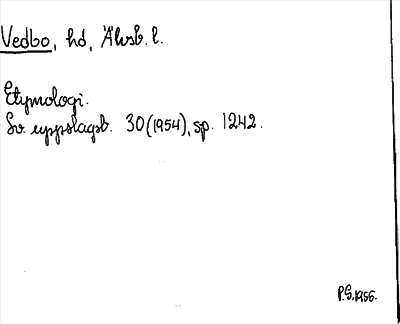 Vedbo, hd, Älvsb. l.
Etymologi.
Sv. uppslagsb. 30 (1954), sp. 1242.
P.S. 1956.